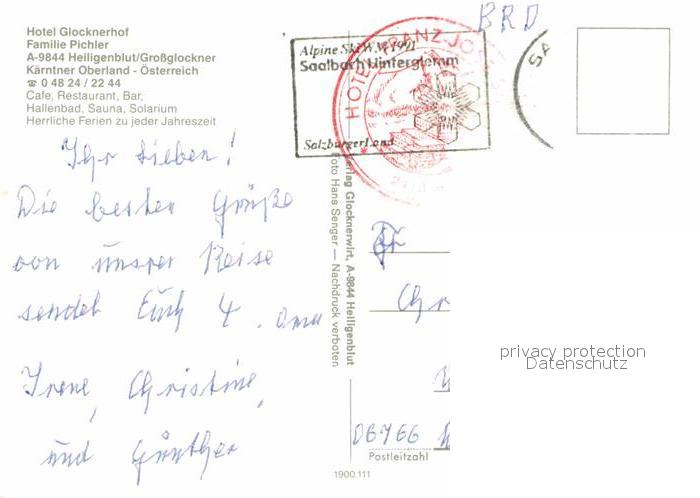 Hotel Glocknerhof
Familie Pichler
A-9844 Heiligenblut/Großglockner
Kärntner Oberland - Österreich
☎ 0 48 24 / 22 44
Cafe, Restaurant, Bar,
Hallenbad, Sauna, Solarium
Herrliche Ferien zu jeder Jahreszeit
Alpine Ski W.M. 1991
Saalbach Hinterglemm
SalzburgerLand
HOTEL FRANZ-JO
BRD
SA
Ihr Lieben!
Die besten Grüße
von unsrer Reise
sendet Euch
Oma
Irene, Christine,
und Günther
Verlag Glocknerwirt, A-9844 Heiligenblut
Foto Hans Senger — Nachdruck verboten
Chr
06766
Postleitzahl
1900.111
privacy protection
Datenschutz